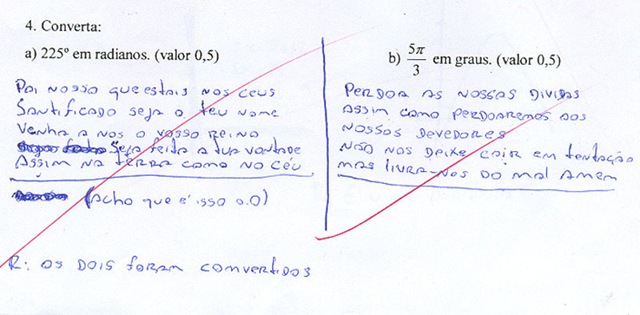 4. Converta:
a) 225º em radianos. (valor 0,5)
Pai nosso que estais nos ceus
Santificado seja o teu nome
venha a nos o vosso reino
seja feita a tua vontade
Assim na terra como no céu
(Acho que é isso o.O)
b) 5π/3 em graus. (valor 0,5)
Perdoa as nossas dividas
assim como perdoaremos aos
nossos devedores
não nos deixe cair em tentação
mas livra-nos do mal amem
R: os dois foram comvertidos